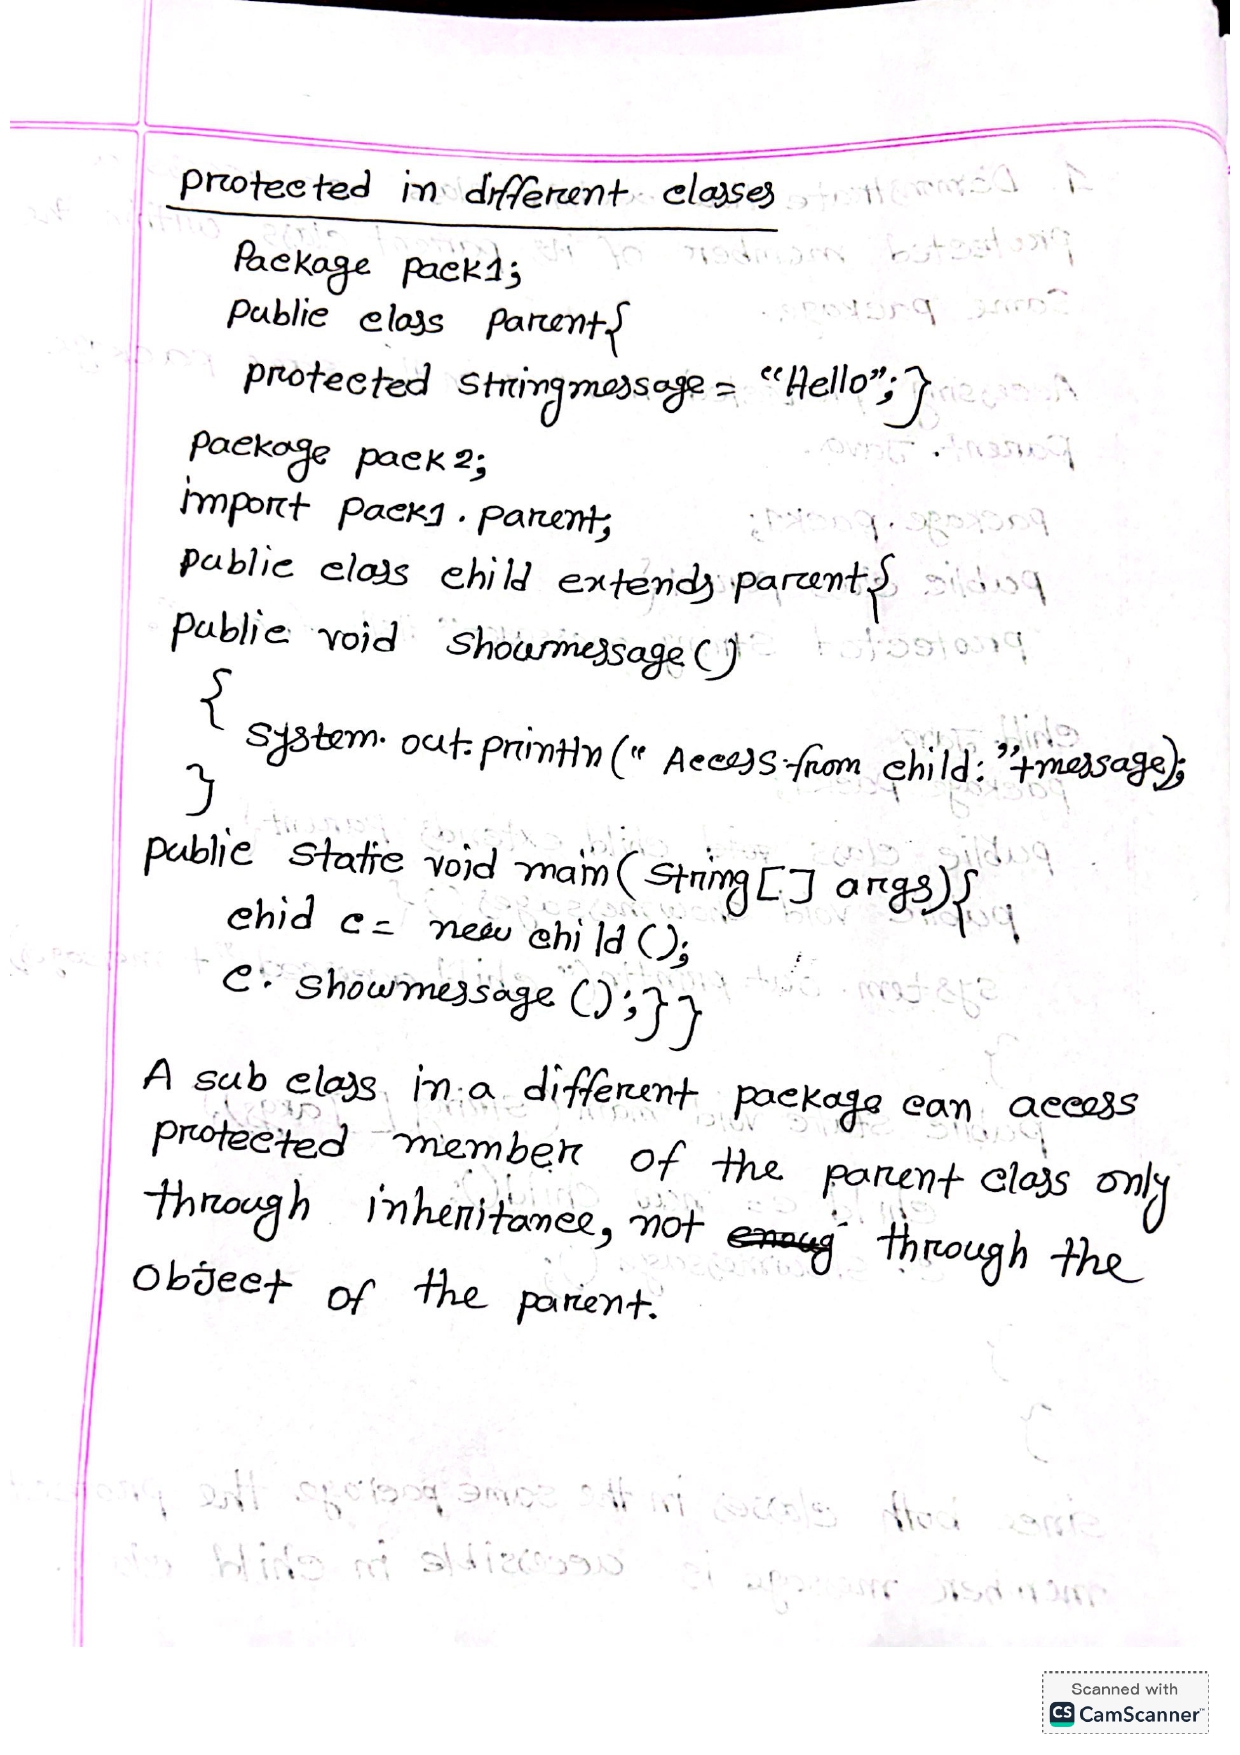 protected in different classes
Package pack1;
public class parent{
protected stringmessage = "Hello";}
package pack2;
import pack1.parent;
public class child extends parent{
public void showmessage()
{
system.out.println("Access from child:"+message);
}
public static void main(string[] args){
chid c= new child();
c. showmessage();}}
A sub class in a different package can access
protected member of the parent class only
through inheritance, not through the
object of the parent.
Scanned with
CS CamScanner